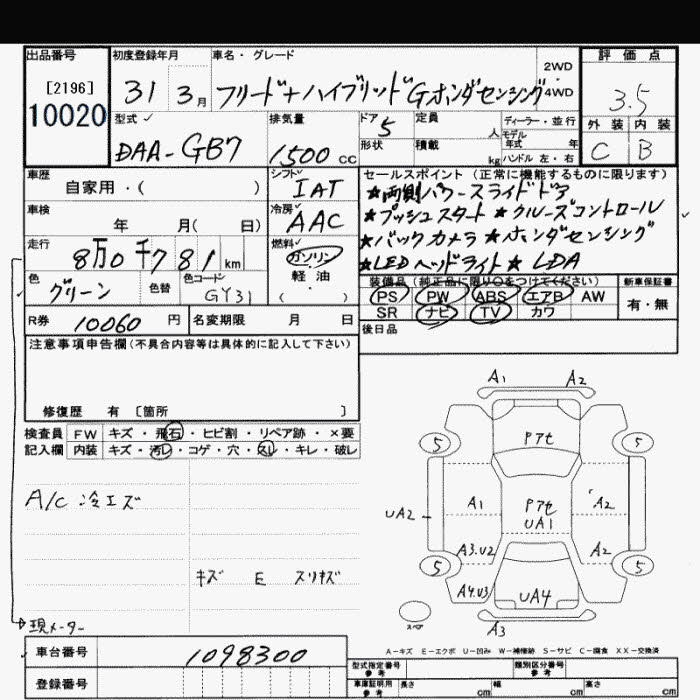 出品番号 初度登録年月 車名・グレード 評価点
[2196]
10020
31 3月 フリード+ハイブリッドGホンダセンシング 2WD・4WD
3.5
外装 内装
C B
型式 排気量 ドア 定員 人 ディーラー・並行
DAA-GB7 1500cc 5 モデル年式 年
形状 積載 kg ハンドル 左・右
車歴 シフト セールスポイント (正常に機能するものに限ります)
自家用・( ) IAT ★両側パワースライドドア
車検 冷房 ★プッシュスタート ★クルーズコントロール
年 月( 日) AAC ★バックカメラ ★ホンダセンシング
走行 燃料 ★LEDヘッドライト ★LDA
8万0千781km ガソリン
軽・油
( )
色 色替 色コード
グリーン GY31
装備品 (純正品に限り○をつけてください) 新車保証書
PS PW ABS エアB AW 有・無
SR ナビ TV カワ
R券 10060円 名変期限 月 日
後日品
注意事項申告欄(不具合内容等は具体的に記入して下さい)
修復歴 有 〔箇所 〕
検査員 FW キズ・飛石・ヒビ割・リペア跡・×要
記入欄 内装 キズ・汚レ・コゲ・穴・スレ・キレ・破レ
A/C 冷エズ
キズ E スリキズ
現メーター
A1 A2
5 Pアセ 5
UA2 A1 Pアセ A2
UA1
A3.U2 A2
5 5
A4.U3 UA4
スペア A3
A-キズ E-エクボ U-凹み W-補修跡 S-サビ C-腐食 XX-交換済
車台番号 1098300
登録番号
型式指定番号 参考 類別区分番号 参考
車庫証明用 参考 長さ cm 幅 cm 高さ cm